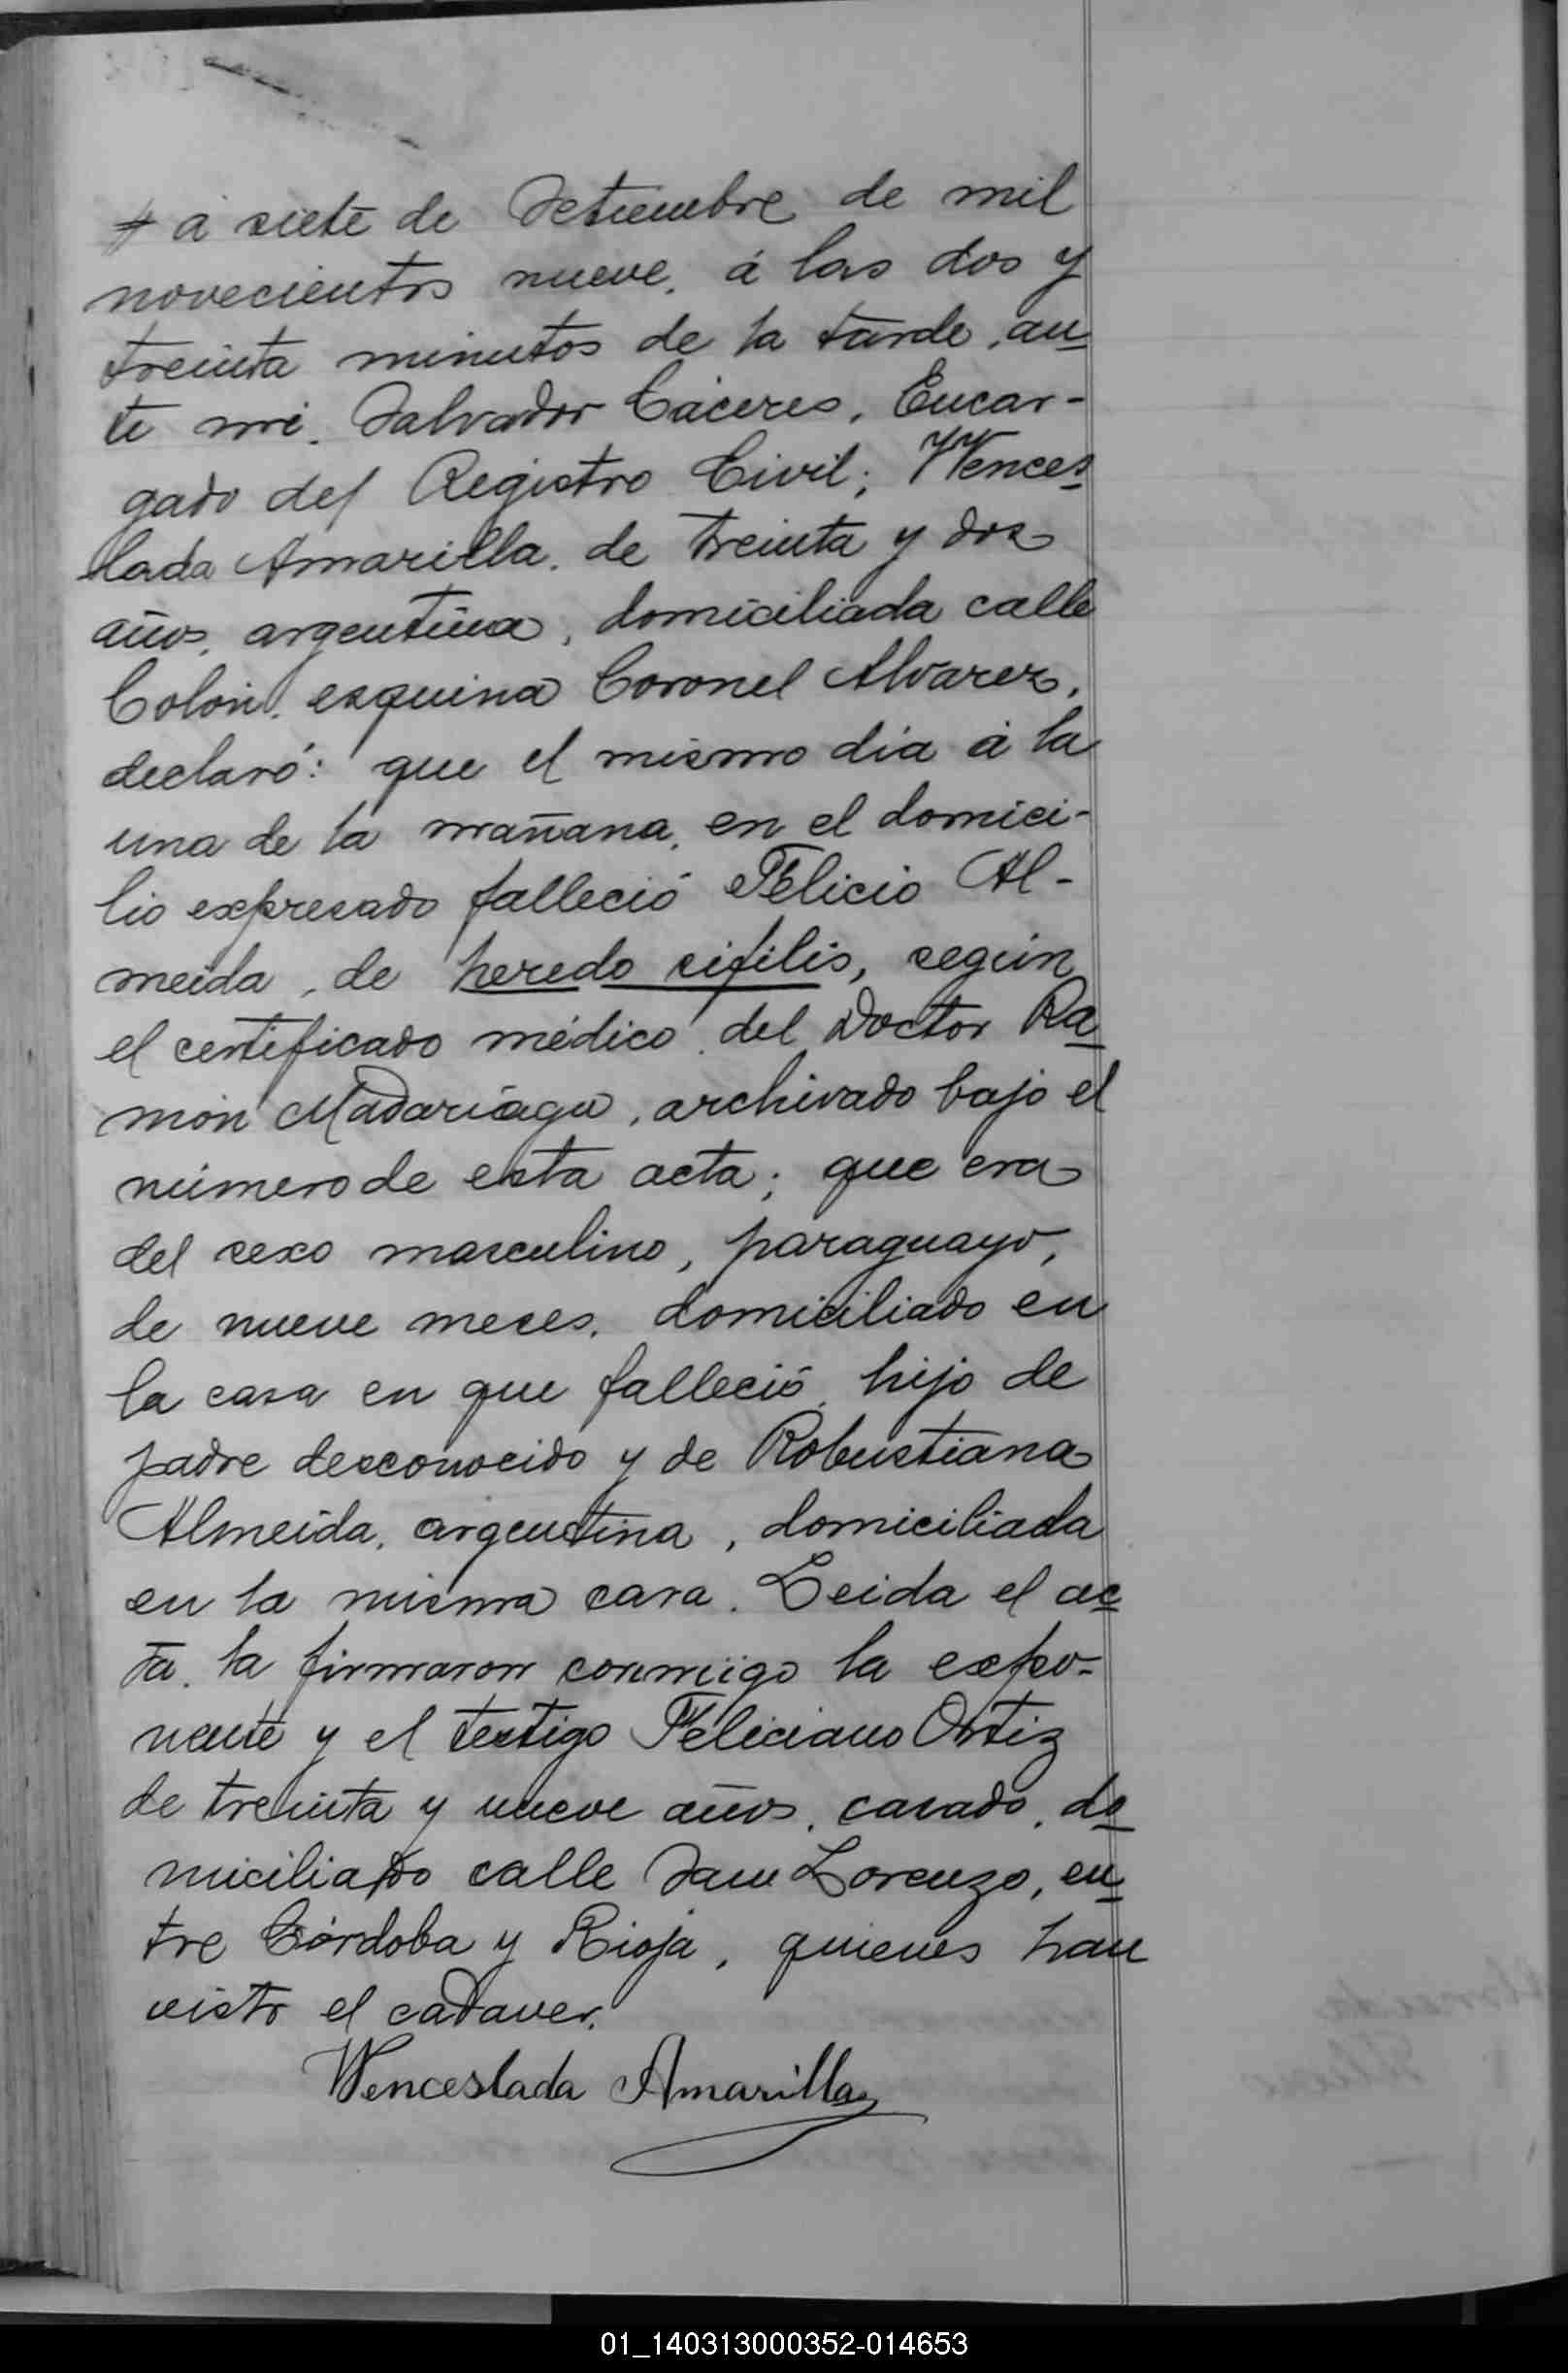 á siete de Setiembre de mil
novecientos nueve, á las dos y
treinta minutos de la tarde, an
te mí, Salvador Cáceres, Encar-
gado del Registro Civil; Wences
lada Amarilla, de treinta y dos
años, argentina, domiciliada calle
Colón, esquina Coronel Alvarez,
declaró: que el mismo dia á la
una de la mañana, en el domici-
lio expresado falleció Felicio Al-
meida, de heredo sifilis, según
el certificado médico del Doctor Ra
món Madariaga, archivado bajo el
número de esta acta; que era
del sexo masculino, paraguayo,
de nueve meses, domiciliado en
la casa en que falleció, hijo de
padre desconocido y de Robustiana
Almeida, argentina, domiciliada
en la misma casa. Leida el ac
ta, la firmaron conmigo la expo-
nente y el testigo Feliciano Ortiz
de treinta y nueve años, casado, do
miciliado calle San Lorenzo, en
tre Córdoba y Rioja, quienes han
visto el cadaver.
Wenceslada Amarilla
01_140313000352-014653